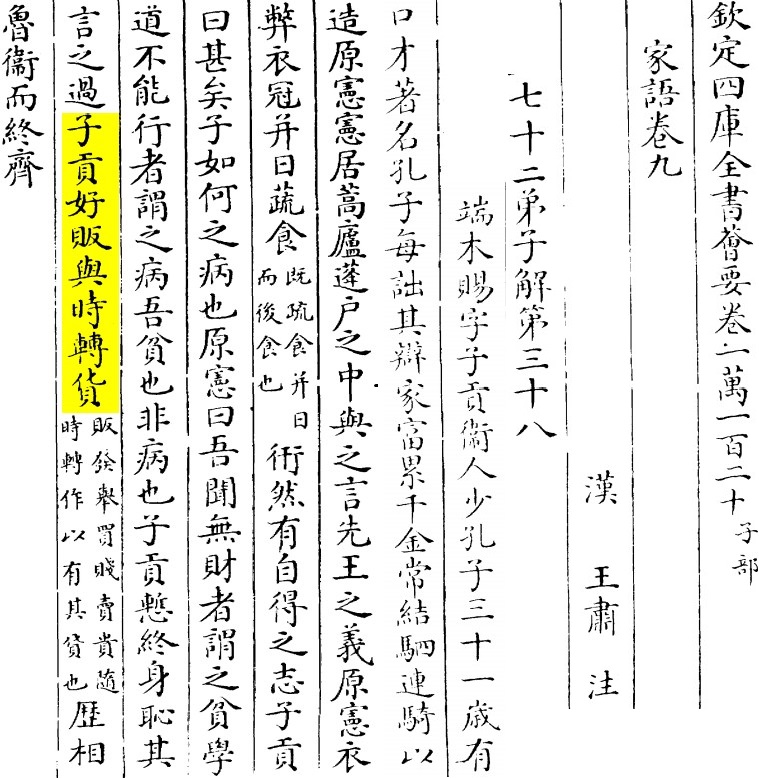 欽定四庫全書薈要卷一萬一百二十 子部
家語卷九
漢 王肅 注
七十二弟子解第三十八
端木賜字子貢衛人少孔子三十一歲有
口才著名孔子每詘其辯家富累千金常結駟連騎以
造原憲憲居蒿廬蓬戶之中與之言先王之義原憲衣
弊衣冠并日蔬食 既疏食并日而後食也 衎然有自得之志子貢
曰甚矣子如何之病也原憲曰吾聞無財者謂之貧學
道不能行者謂之病吾貧也非病也子貢慙終身恥其
言之過子貢好販與時轉貨 販發舉買賤賣貴隨時轉作以有其貨也 歷相
魯衞而終齊